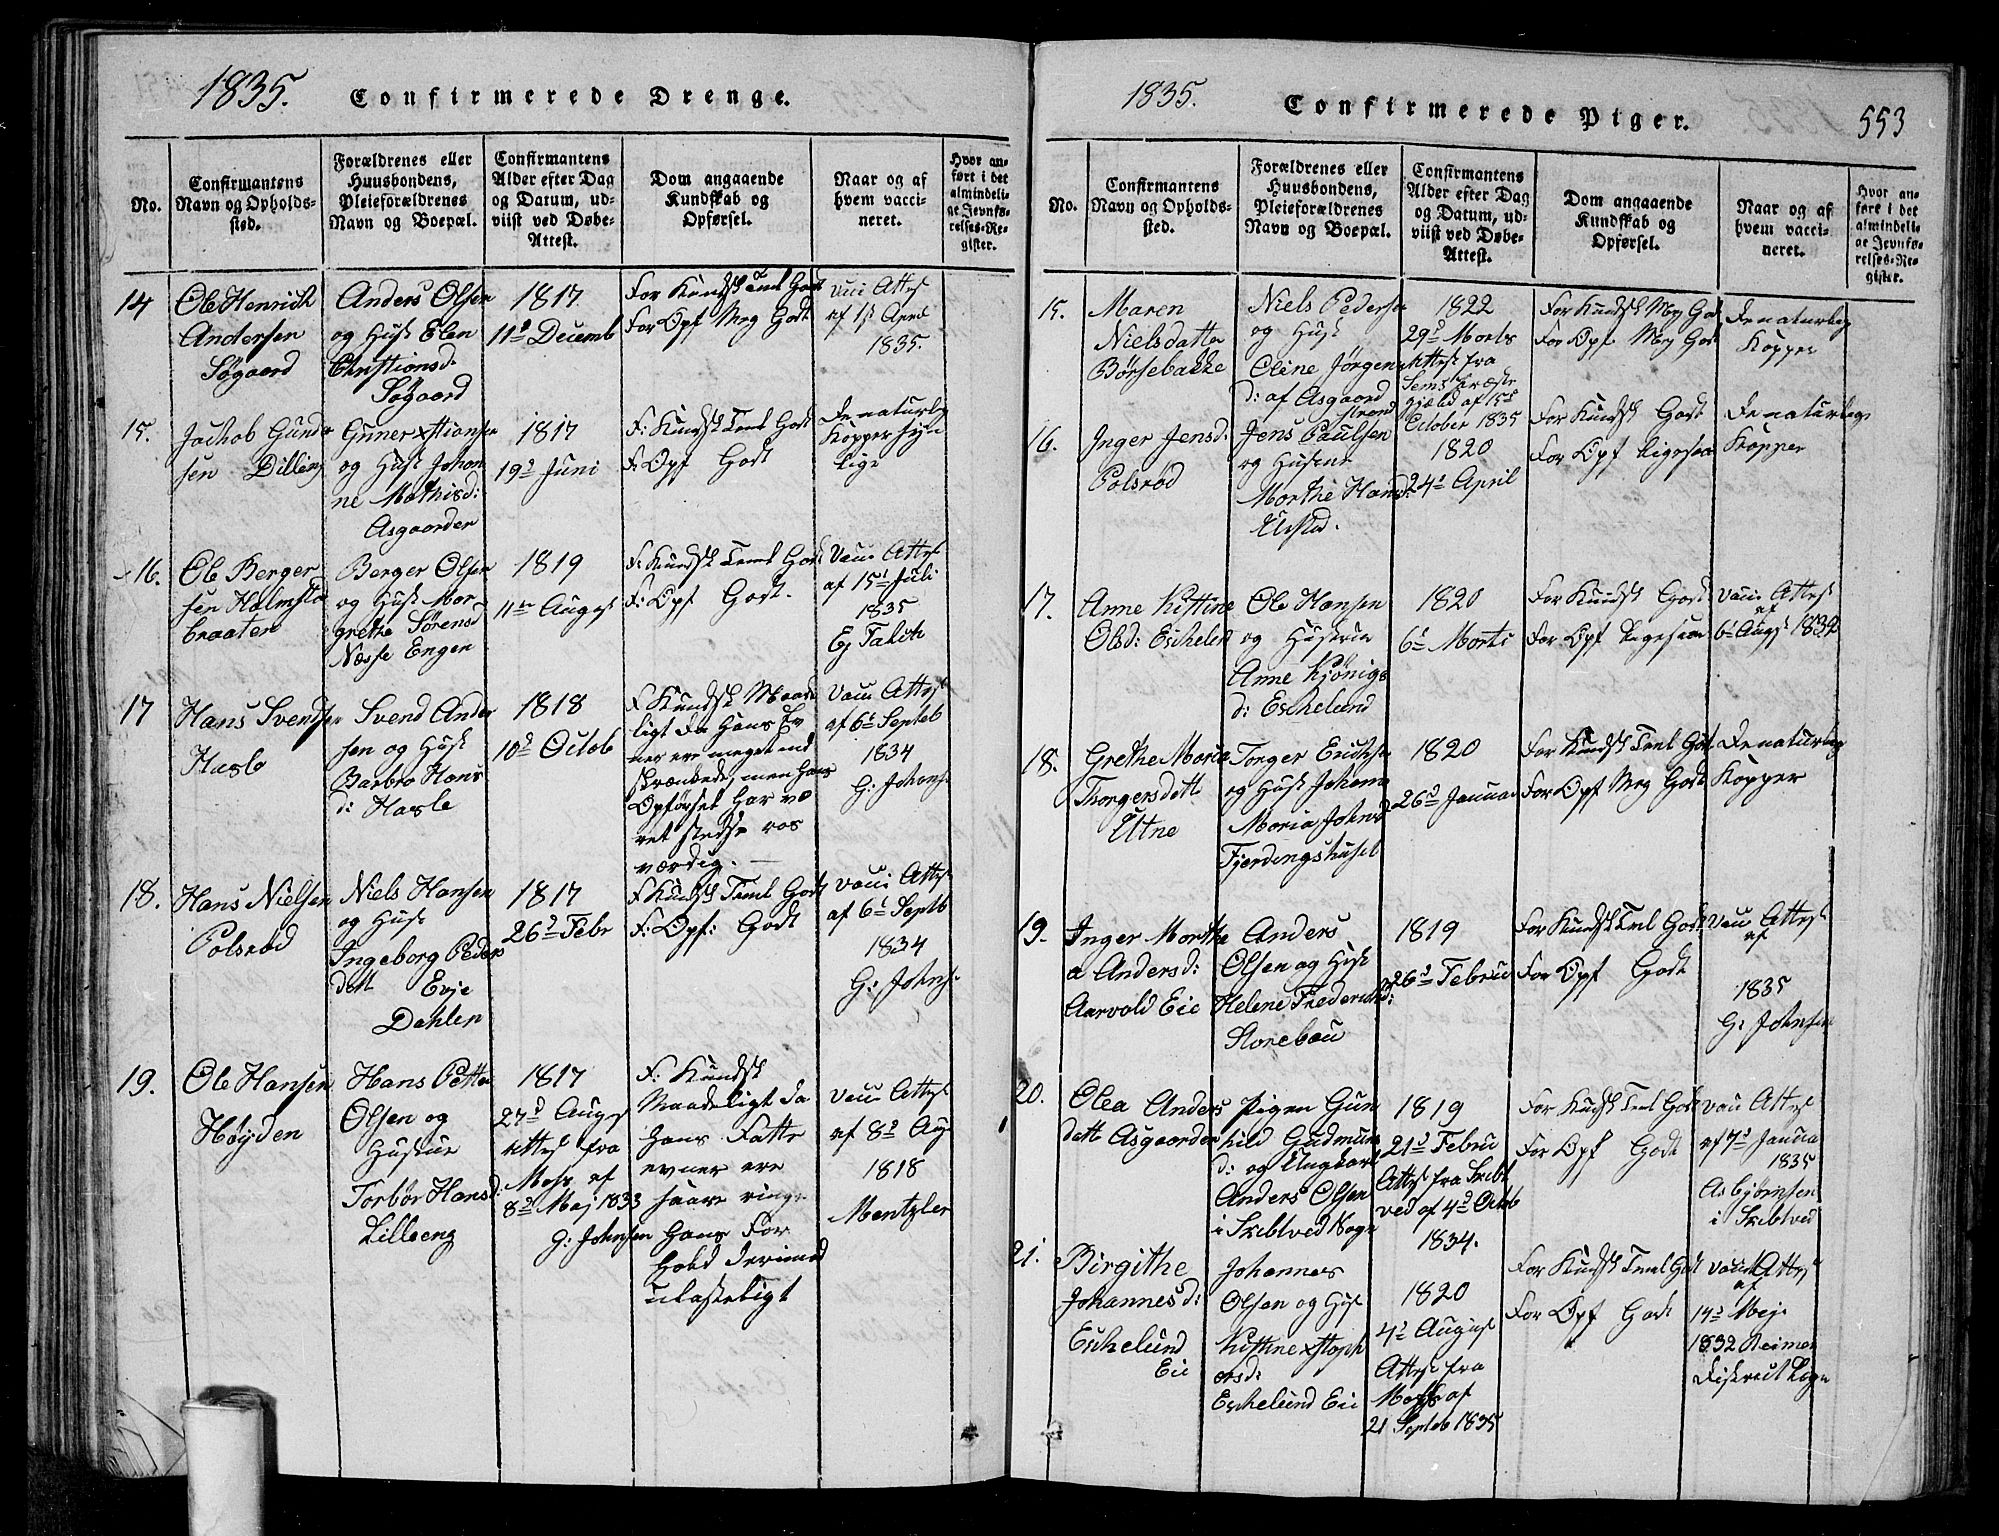 1835.
Confirmerede Drenge.
No.
Confirmantens
Navn og Opholds-
sted.
Forældrenes eller
Huusbondens,
Pleieforældrenes
Navn og Boepæl.
Confirmantens
Alder efter Dag
og Datum, ud-
viist ved Døbe-
Attest.
Dom angaaende
Kundskab og
Opførsel.
Naar og af
hvem vacci-
neret.
Hvor an-
ført i det
almindeli-
ge Jevnfø-
relses-Re-
gister.
14
Ole Henrich
Andersen
Søgaard
Anders Olsen
og Hust Elen
Christiansd:
Søgaard
1817
11te Decemb
For Kundsk Teml Godt
For Opf Meg Godt
Vacc Attest
af 1st April
1835.
15.
Jachob Gunder
sen Dilling
Gunner Xstiansen
og Hust Johan
ne Mathisd:
Asgaarden
1817
19d Juni
F: Kundsk Teml Godt
F: Opf Godt
De naturlig
Kopper syn
lige
16.
Ole Berger
sen Halmsta
braaten
Berger Olsen
og Hust Mar
grethe Sørensd
Næsse Engen
1819
11te August
F: Kundsk Teml Godt
F: Opf Godt.
Vacc Attest
af 15d Juli
1835
Ej Falch
17
Hans Svendsen
Haslo
Svend Ander
sen og Hust
Barbro Hans
d: Hasle
1818
10d Octob
F Kundsk Maade
ligt da Hans Ev
ner ere meget ind
skrænkede, men Hans
Opførsel har væ
ret stedse ros
værdig.
Vacc Attest
af 6d Septeb
1834
G: Johnse
18.
Hans Nielsen
Polsrød
Niels Hansen
og Hust
Ingeborg Peders
datt Evje
Dahlen
1817
26d Febr
F Kundsk Teml Godt
F: Opf: Godt
Vacc Attest
af 6d Septb
1834
G: Johnse
19.
Ole Hansen
Høyden
Hans Petter
Olsen og
Hustrue
Torbør Hansd:
Lilleeng
1817
27d August
Attest fra
Moss af
8d Maj 1833
G: Johnsen
F: Kundsk
Maadeligt da
Hans Fatte
evner ere
saare ringe
Hans For
hold derimod
ulasteligt
Vacc Attest
af 8d Aug
1818
Mentzler
1835.
Confirmerede Piger.
553
No.
Confirmantens
Navn og Opholds-
sted.
Forældrenes eller
Huusbondens,
Pleieforældrenes
Navn og Boepæl.
Confirmantens
Alder efter Dag
og Datum, ud-
viist ved Døbe-
Attest.
Dom angaaende
Kundskab og
Opførsel.
Naar og af
hvem vacci-
neret.
Hvor an-
ført i det
almindeli-
ge Jevnfø-
relses-Re-
gister.
15.
Maren
Nielsdatter
Børsebakke
Niels Pedersen
og Hust
Eline Jørgen
d: af Asgaard
strand
1822
29d Marts
Attest fra
Sems Præste
gjæld af 15d
October 1835
For Kundsk Meg Godt
For Opf Meg Godt
De naturlig
Kopper
16.
Inger Jensd:
Polsrød
Jens Paulsen
og Hustrue
Marthe Hansd:
1820
24d April
For Kundsk Godt
For Opf ligesaa
De naturlige
Kopper
17.
Anne Kistine
Olsd: Eschelund
Ole Hansen
og Hustrue
Anne Kjønigs
d: Eschelund
1820
6d Marti
For Kundsk Godt
For Opf ligesaa
Vacc Attest
af
6d Augst 1834
18.
Grethe Maria
Thorgersdatt
Utne
Torger Erichsen
og Hust Johanne
Maria Johnsd
Fjerdingshuset
1820
26d Januar
For Kundsk Teml Godt
For Opf Meg Godt
De naturlig
Kopper
19.
Inger Marthe
a Andersd:
Aarvold Eie
Anders
Olsen og Hust
Helene Fredericksd:
Storebau
1819
26d Februa
For Kundsk Teml Godt
For Opf Godt
Vacc Attest
af
1835
G: Johnsen
20.
Olea Anders
datte Asgaarden
Pigen Gun
hild Gudmuns
d: og Ungkarl
Anders Olsen
i Skibtved Sogn
1819
21d Februa
Attest fra Skibt
ved af 4d Octob
1834.
For Kundsk Teml Godt
For Opf Godt
Vacc Attest
af 7d Janua
1835
Asbjørnsen
i Skibtved
21.
Birgithe
Johannesd:
Eschelund
Eie
Johannes
Olsen og Hust
Kistine Xstoph
ersd:
Eschelund Eie
1820
4d August
Attest fra
Moss af
21 Septeb 1835
For Kundsk Teml Godt
For Opf Godt
Vacc Attest
af
14d Maj
1832 Reimer
Distrect Læge